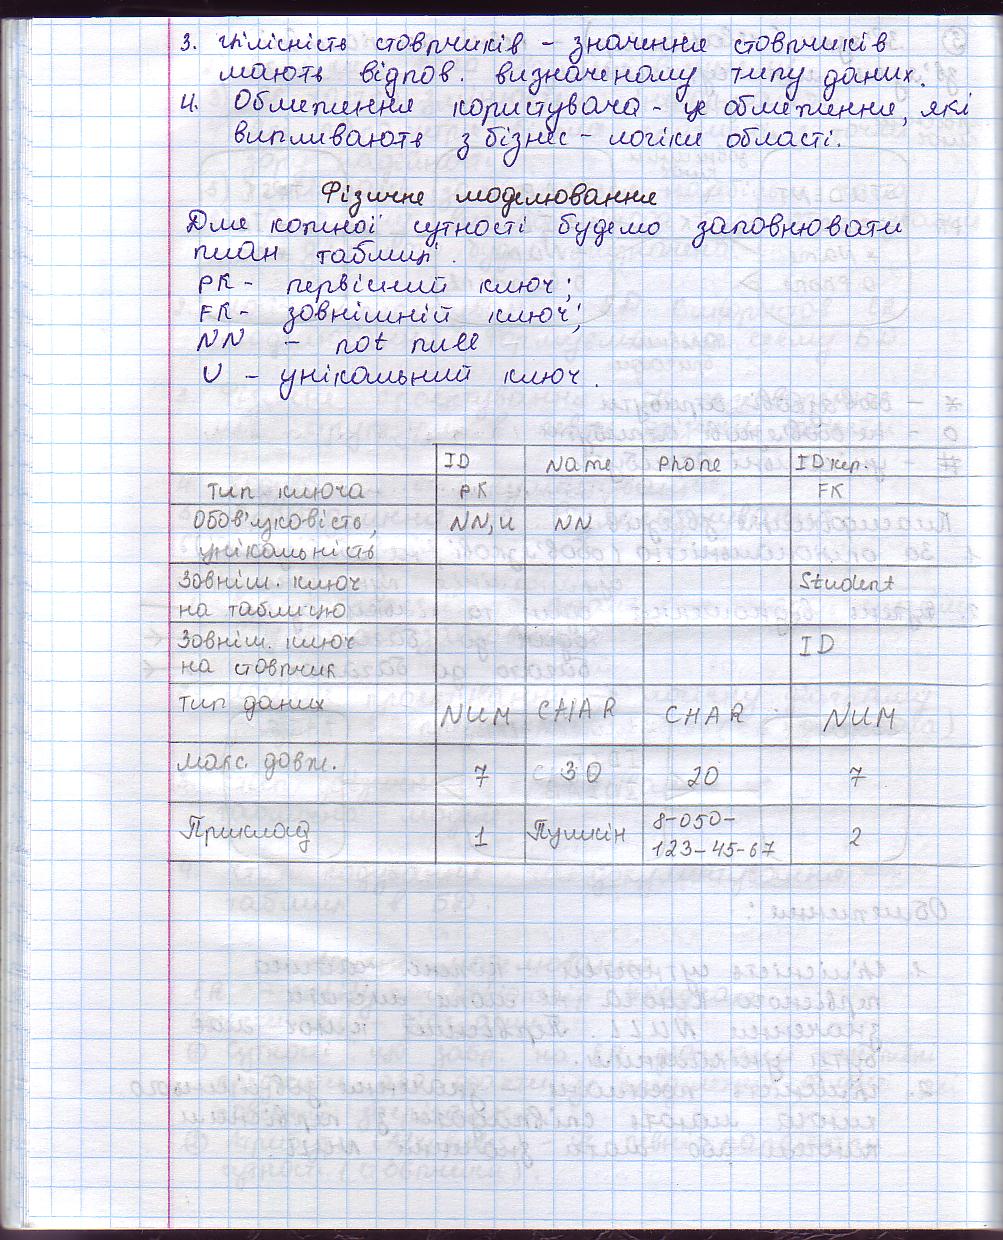 3. Цілісність стовпчиків – значення стовпчиків
мають відпов. визначеному типу даних.
4. Обмеження користувача – це обмеження, які
випливають з бізнес – логіки області.
Фізичне моделювання
Для кожної сутності будемо заповнювати
план таблиці.
PK – первісний ключ;
FK – зовнішній ключ;
NN – not null
U – унікальний ключ.
ID Name Phone ID кер.
Тип ключа PK FK
Обов'язковість, NN, U NN
унікальність
Зовніш. ключ Student
на таблицю
Зовніш. ключ ID
на стовпчик
Тип даних NUM CHAR CHAR NUM
Макс. довж. 7 30 20 7
Приклад 1 Пушкін 8-050-
123-45-67 2